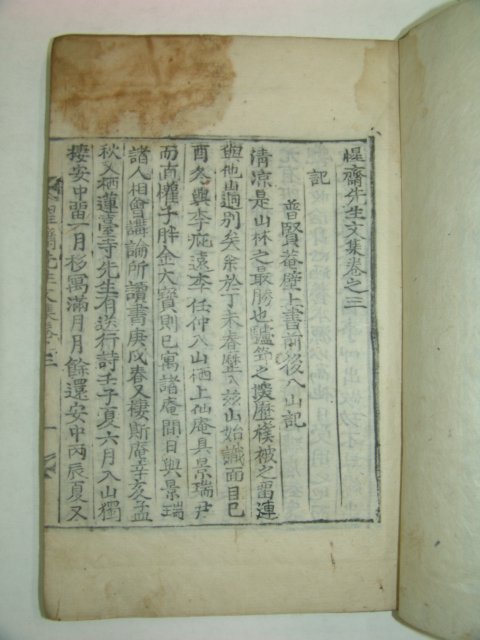 惺齋先生文集卷之三
記
普賢菴壁上書前後入山記
清凉是山林之最勝也之歷樸樕之留連
與他山逈別矣余於丁未春歷入兹山始識面目己
酉冬與李庇遠李任仲入山栖上仙庵具景瑞尹
而直權子胖金大寶則已寓諸庵間日與景瑞
諸人相會講論所讀書庚戌春又棲斯庵辛亥孟
秋又栖蓮臺寺先生有送行詩壬子夏六月入山獨
棲安中留一月移寓滿月月餘還安中丙辰夏又
惺齋先生文集卷三 一